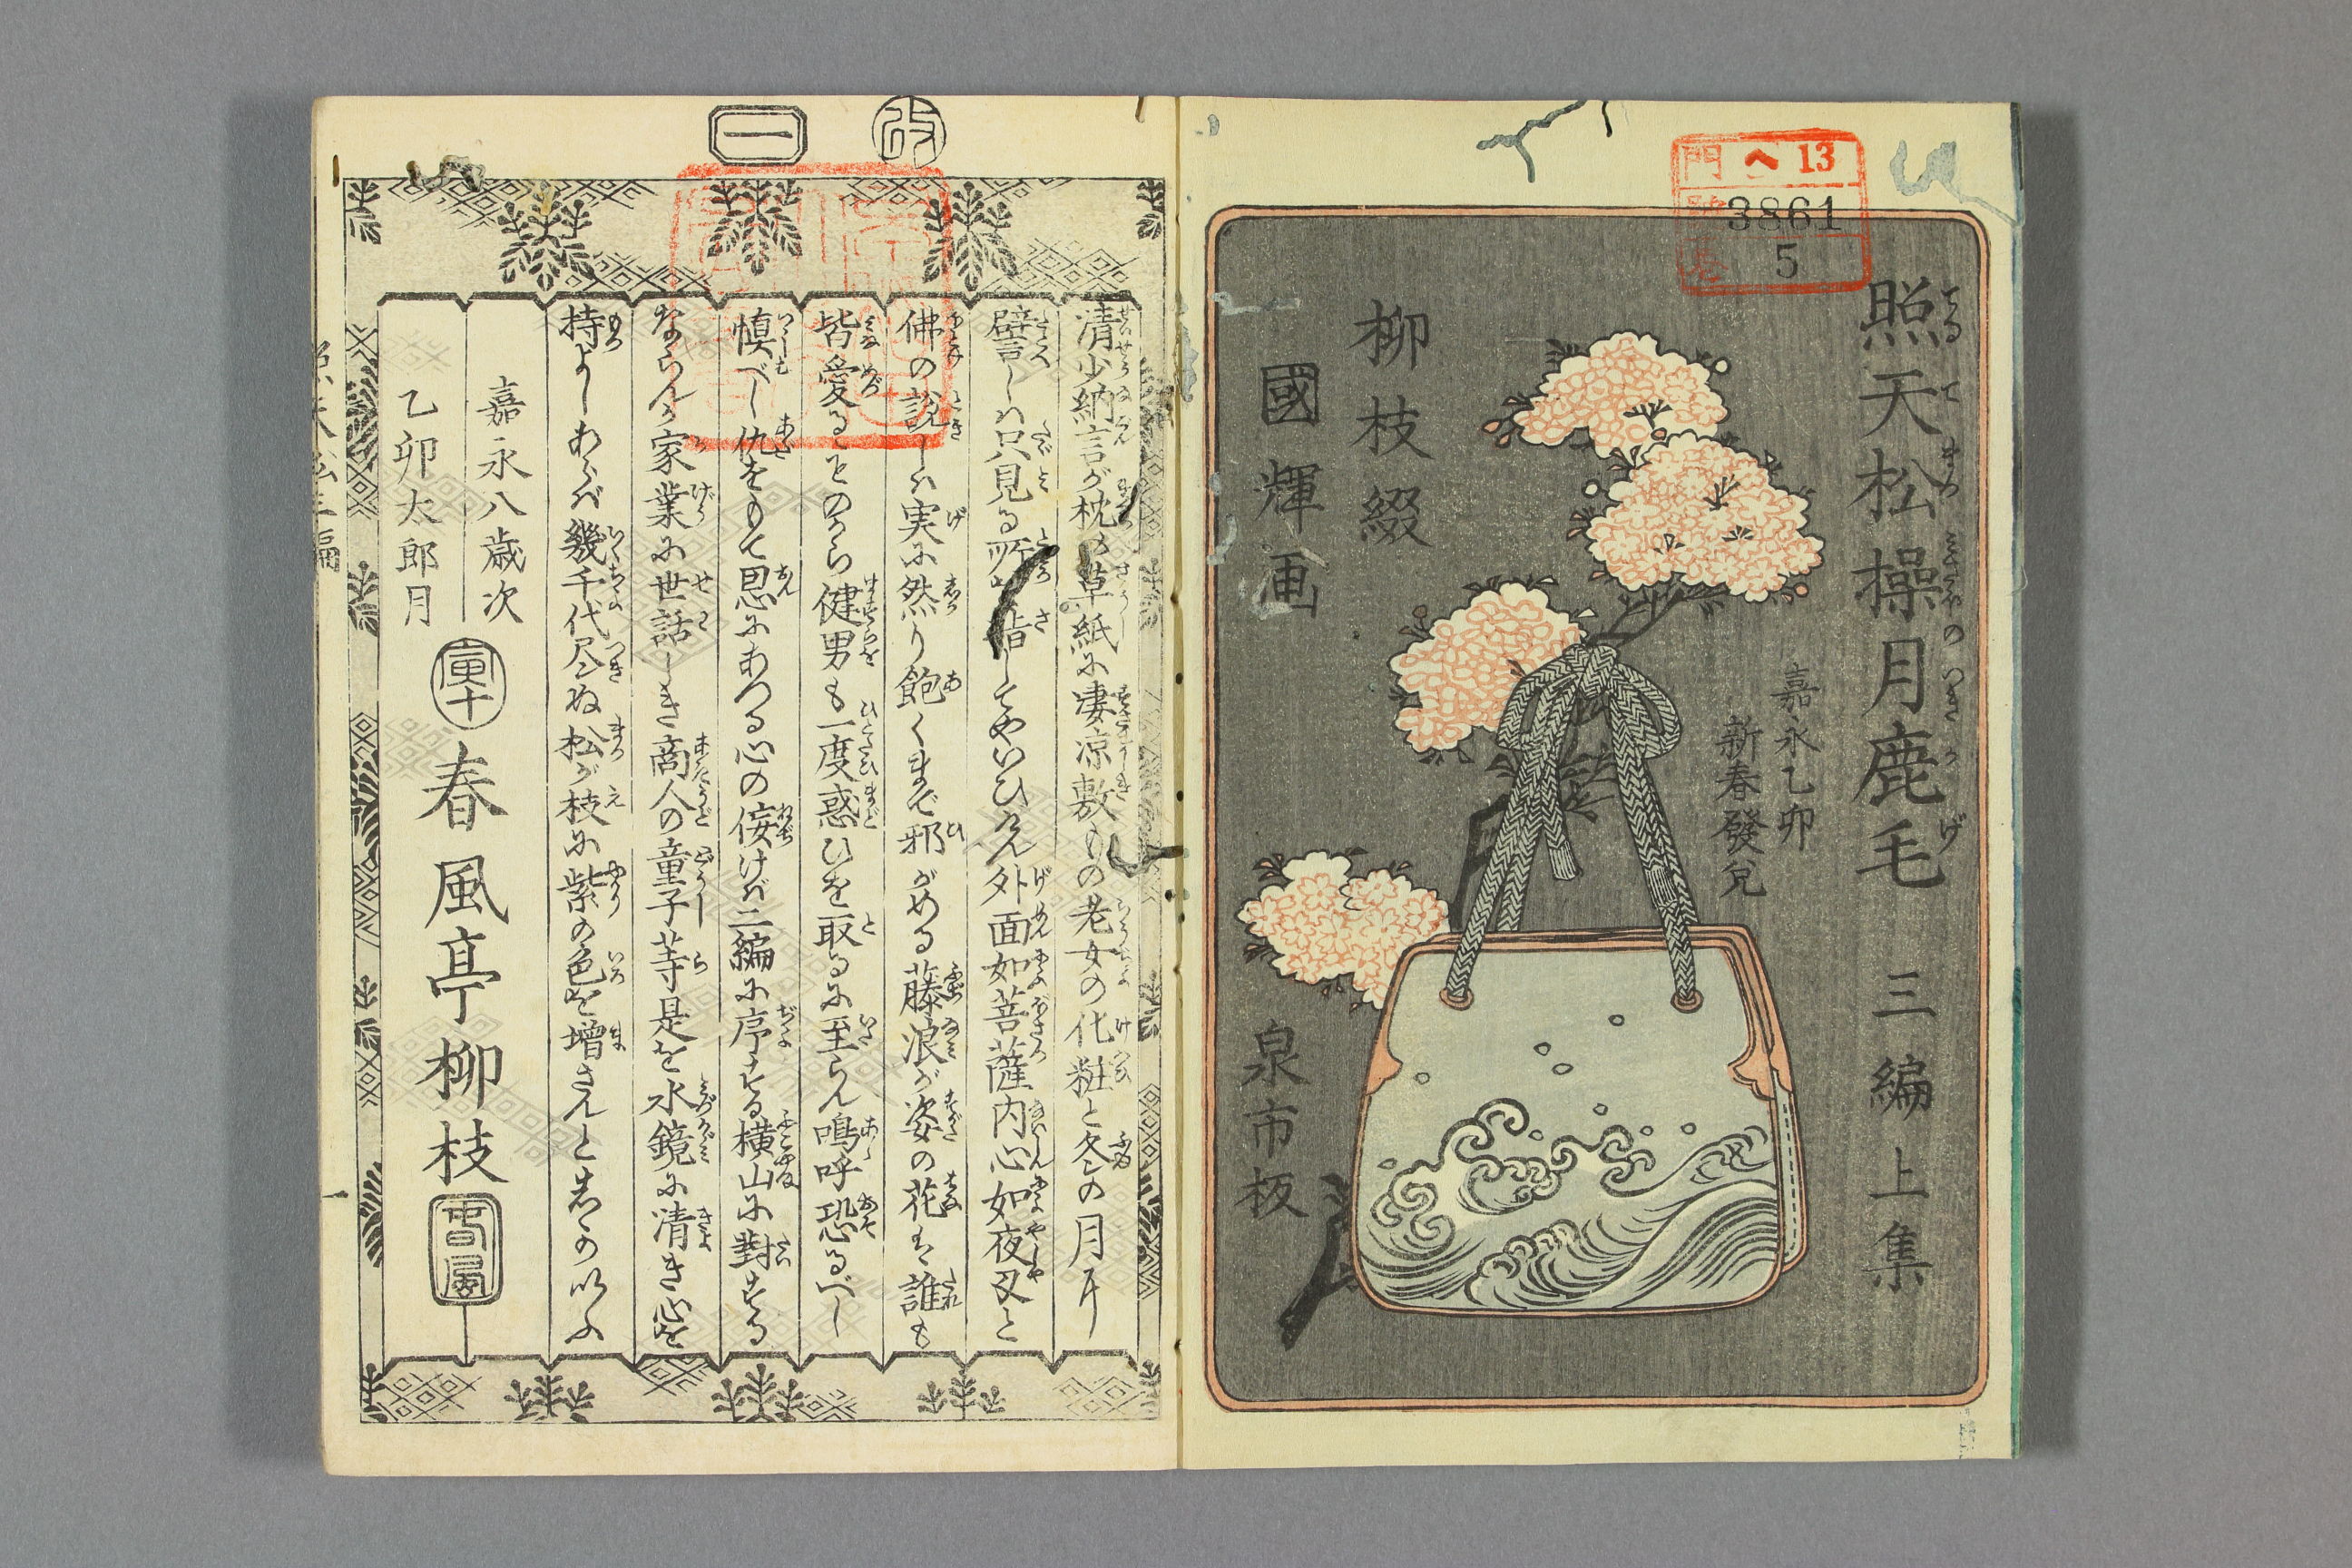 門 ヘ 13
3861
5
照天松操月鹿毛 三編 上集
てるてまつみさほのつきかげ
嘉永乙卯
新春發兌
柳枝綴
國輝画
泉市板
改
一
清少納言が枕の草紙に凄凉敷ものの老女の化粧と冬の月
譬しは只見る所を指してやいひけん外面如菩薩内心如夜叉と
佛の説しハ実に然り飽くまで邪がめる藤浪が姿の花は誰も
皆愛るそのから健男も一度惑ひを取るに至らん嗚呼恐るべし
慎べし仇をもて恩にあつる心の侫けば二編に序する横山に對する
ならんか家業に世話しき商人の童子等是を水鏡に清き心を
持よしあらば幾千代尽ぬ松が枝に紫の色を増さんとしかいふ
嘉永八歳次
乙卯太郎月
春風亭柳枝